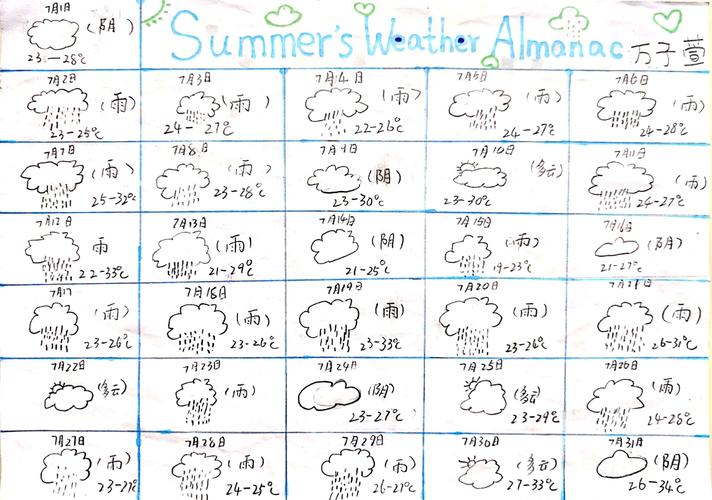 7月1日
(阴)
23-28℃
Summer's Weather Almanac
万子萱
7月2日
(雨)
23-25℃
7月3日
(雨)
24-27℃
7月4日
(雨)
22-26℃
7月5日
(雨)
24-27℃
7月6日
(雨)
24-28℃
7月7日
(雨)
25-32℃
7月8日
(雨)
23-28℃
7月9日
(阴)
23-30℃
7月10日
(多云)
23-30℃
7月11日
(雨)
24-27℃
7月12日
雨
22-33℃
7月13日
(雨)
21-29℃
7月14日
(阴)
21-25℃
7月15日
(雨)
19-23℃
7月16日
(阴)
21-27℃
7月17
(雨)
23-26℃
7月18日
(雨)
23-26℃
7月19日
(雨)
23-33℃
7月20日
(雨)
23-26℃
7月21日
(雨)
26-31℃
7月22日
(多云)
7月23日
(雨)
7月24日
(阴)
23-27℃
7月25日
(多云)
23-29℃
7月26日
(雨)
24-28℃
7月27日
(雨)
23-27℃
7月28日
(雨)
24-25℃
7月29日
(雨)
26-27℃
7月30日
(多云)
27-33℃
7月31日
(阴)
26-34℃